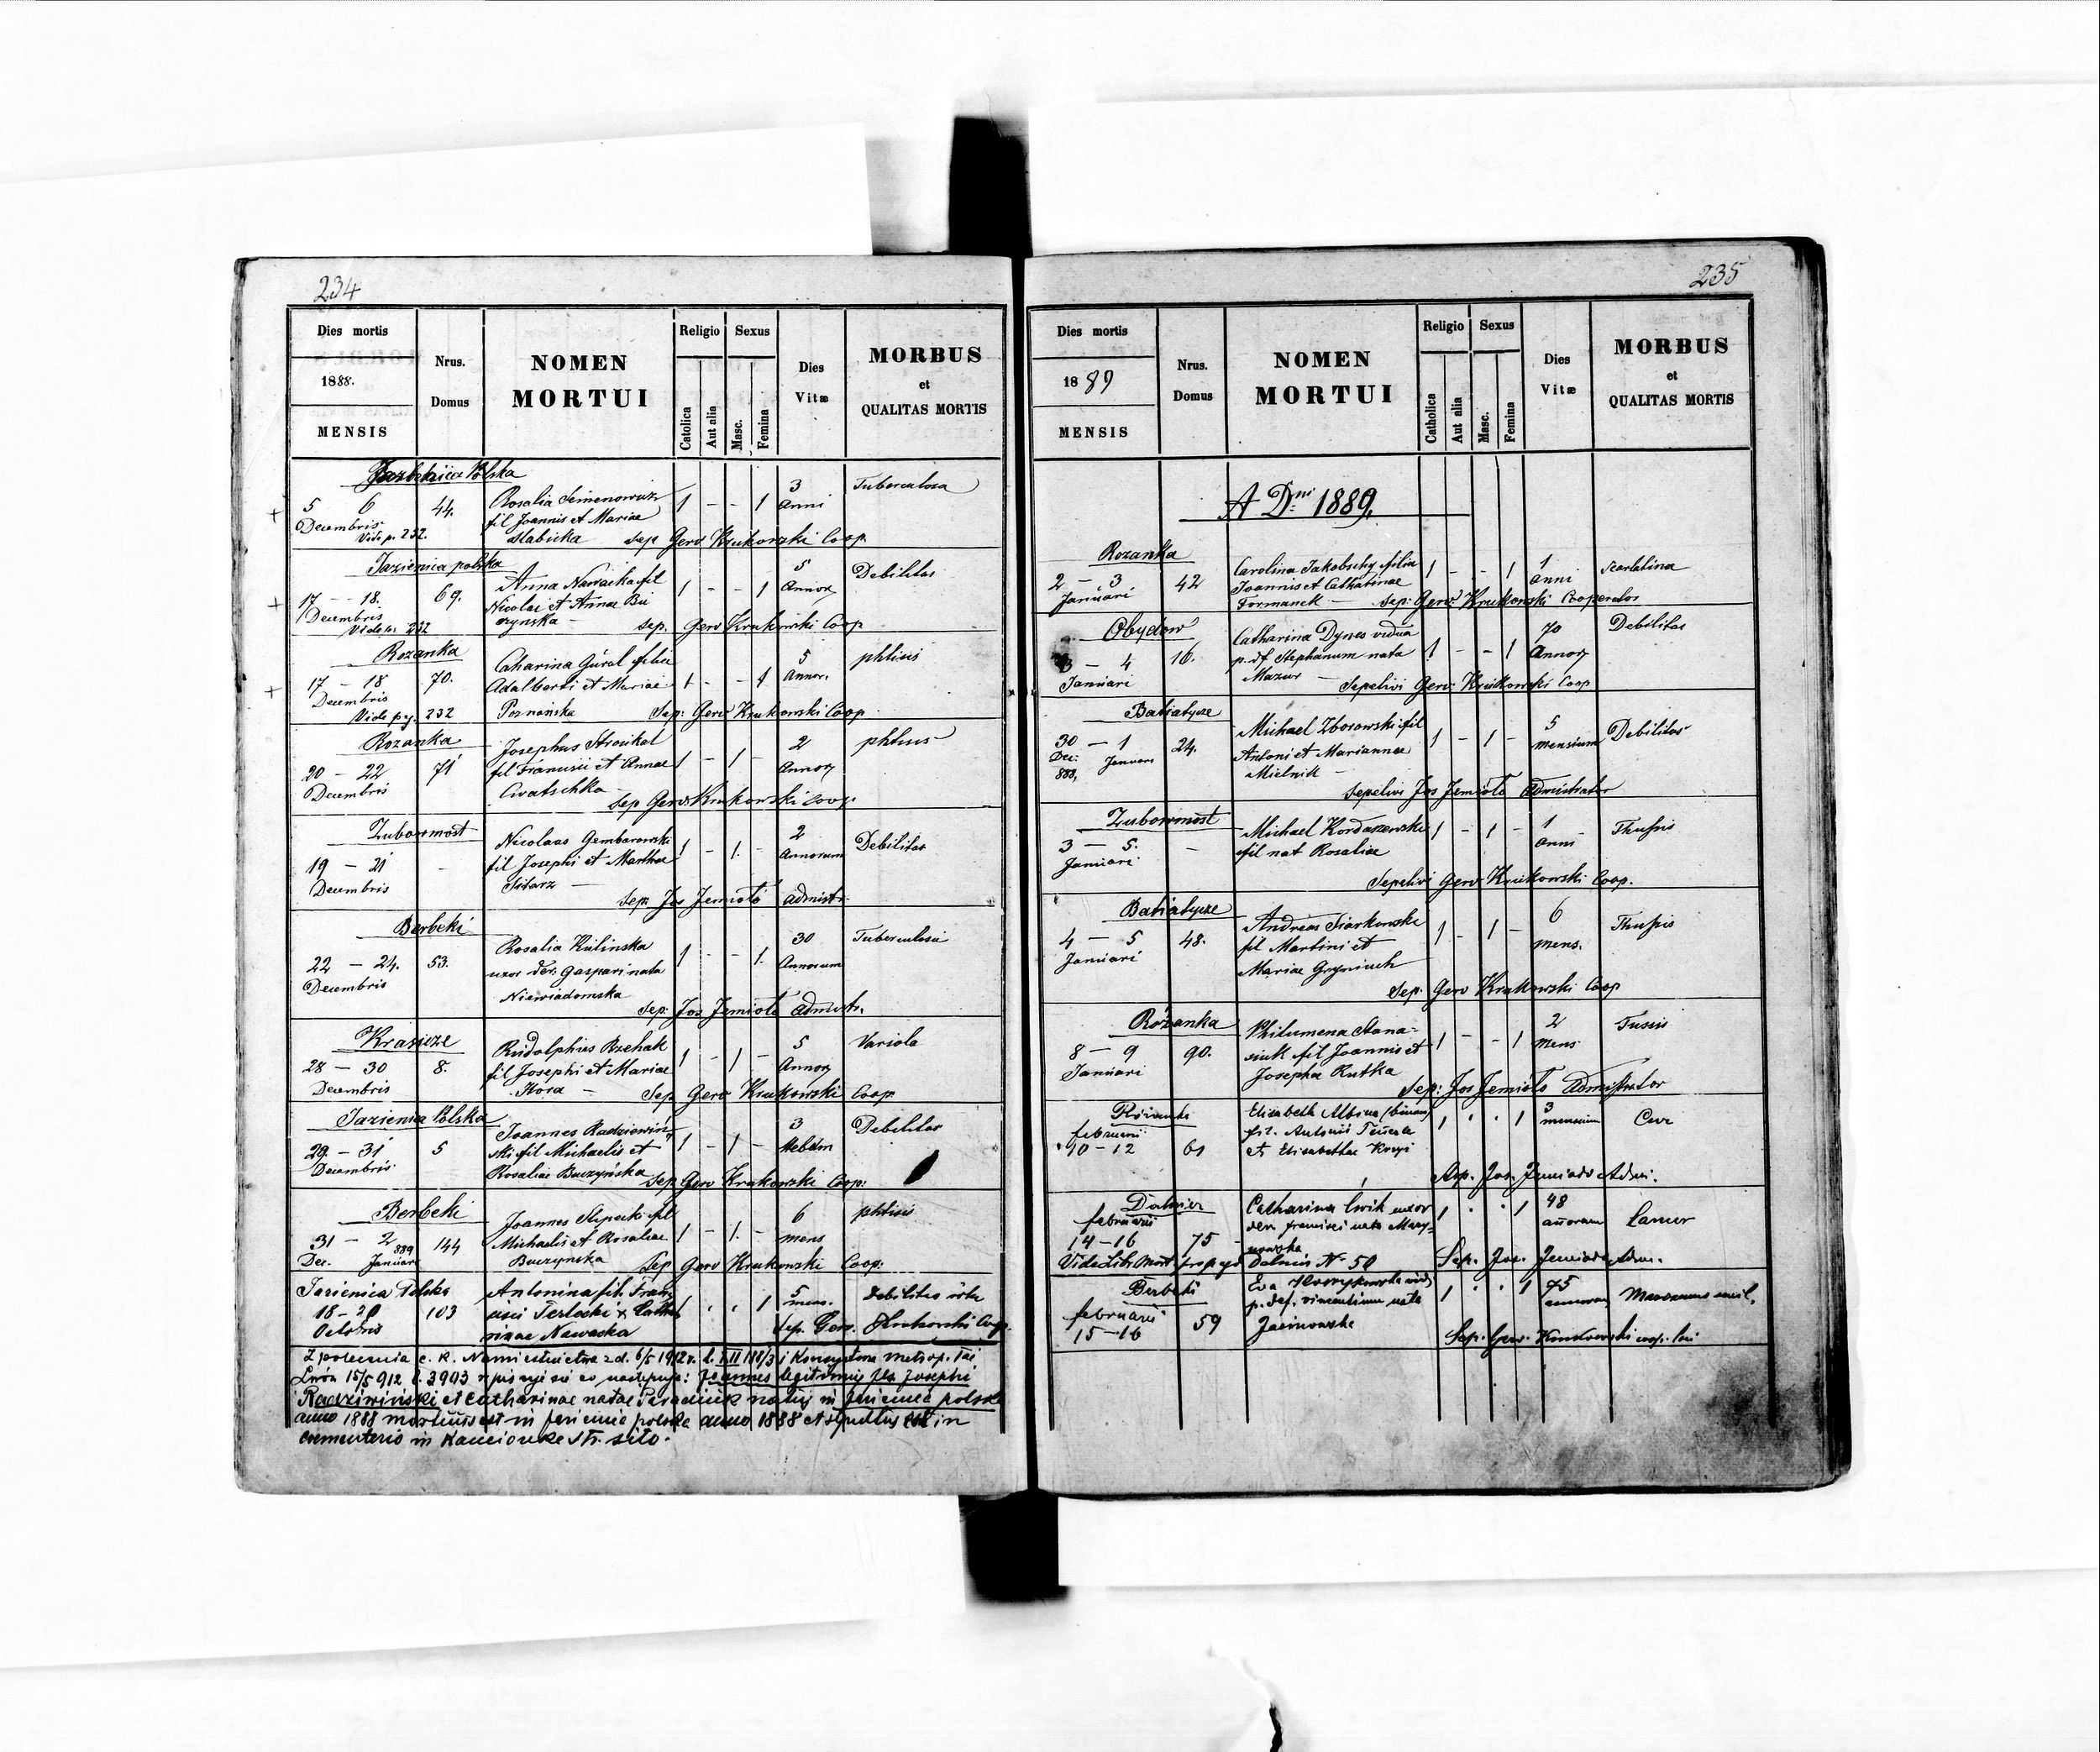 234
Dies mortis
1888.
MENSIS
Nrus.
Domus
NOMEN
MORTUI
Religio
Sexus
Catolica
Aut alia
Masc.
Femina
Dies
Vitæ
MORBUS
et
QUALITAS MORTIS
Polska
5 6 44. Rosalia Semenowicz 1 - - 1 3 Tuberculosa
Decembris fil Joannis et Mariae Anni
Vide p. 232. Slabicka Sep Gerv Krukowski Coop.
Jazienica polska
17 - 18. 69. Anna Nawacka fil 1 - - 1 5 Debilitas
Decembris Nicolai et Annae Bu Annor
Vide p. 232 czynska - sep. Gerv Krukowski Coop
Rozanka
17 - 18 70. Catharina Góral filia 1 - - 1 5 phtisis
Decembris Adalberti et Mariae Annor.
Vide pg. 232 Poznańska Sep: Gerv Krukowski Coop
Rozanka
20 - 22 71 Josephus Stroukal 1 - 1 - 2 phtisis
Decembris fil Francisci et Annae Annor
Cwatschka - Sep Gerv Krukowski Coop.
Zubowmost
19 - 21 - Nicolaus Gembarowski 1 - 1. - 2 Debilitas
Decembris fil Josephi et Marthae Annorum
Sitarz - Sep. Jos Jemioło administr.
Berbeki
22 - 24. 53. Rosalia Kulinska 1 - - 1. 30 Tuberculosis
Decembris uxor der. Gaspari nata Annorum
Niewiadomska Sep: Jos Jemioło Administr.
Krasicze
28 - 30 8. Rudolphus Rzehak 1 - 1 - 5 Variola
Decembris fil Josephi et Mariae Annor
Hora - Sep Gerv Krukowski Coop.
Jazienica Polska
29. - 31 5 Joannes Radziewiń 1 - 1 - 3 Debilitas
Decembris ski fil Michaelis et Hebdm
Rosaliae Buczyńska Sep Gerv Krukowski Coop:
Berbeki
31 - 2 144 Joannes fil 1 - 1. - 6 phtisis
Dec. 889 Januari Michaelis et Rosaliae mens
Buczynska Sep Gerv Krukowski Coop:
Jazienica Polska Antonina fil. Fran 5 Debilitas
18 - 20 103 cisci et Catha 1 . . 1 mens.
Octobris rinae Nawacka Sep. Gerv. Krukowski Coop.
Z polecenia c. k. Namiestnictwa z d. 6/5 1912 r. l. XII i Konsystorza metrop. łac
Lwów 15/5 912 l. 3993 wpisuje się co następuje: Joannes legitimus fil. Josephi
Radziwiński et Catharinae natae natus in Jazienica polska
anno 1888 mortuus est in Jazienica polska anno 1888 et sepultus est in
coementerio in Kamionka Str. sito.
235
Dies mortis
1889
MENSIS
Nrus.
Domus
NOMEN
MORTUI
Religio
Sexus
Catholica
Aut alia
Masc.
Femina
Dies
Vitæ
MORBUS
et
QUALITAS MORTIS
A Dni 1889.
Rozanka
2 - 3 42 Carolina Jakobschy filia 1 - - 1 1 Scarlatina
Januari Joannis et Catharinae anni
Formanek - Sep: Gerv. Krukowski Cooperator
Obydow
3 - 4 16. Catharina Dynes vidua 1 - - 1 70 Debilitas
Januari p. df Stephanum nata Annor
Mazur - Sepelivi Gerv: Krukowski Coop
Batiatycze
30 - 1 24. Michael Zborowski fil 1 - 1 - 5 Debilitas
Dec: 888, Januari Antoni et Mariannae mensium
Mielnik - Sepelivi Jos Jemioło Administrator
Zubowmost
3 - 5. - Michael Kordaszewski 1 - 1 - 1 Thussis
Januari fil nat Rosaliae anni
Sepelivi Gerv Krukowski Coop.
Batiatycze
4 - 5 48. Andreas Siarkowski 1 - 1 - 6 Thussis
Januari fil Martini et mens.
Mariae Gryniuch Sep. Gerv Krukowski Coop
Rózanka
8 - 9 90. Philumena Stana- 1 - - 1 2 Tussis
Januari siuk fil Joannis et mens
Josepha Rutka Sep: Jos Jemioło Administrator
Różanka Elisabeth Albina (binom) 3
februarii fil. Antonii 1 . . 1 mensium
10 - 12 61 et Elisabethae Sep. Jos. Jemioło Admi.
Dalnicz Catharina Cwik uxor 48
februarii der francisci nata 1 . . 1 annorum Cancer
14 - 16 75
Vide Lib. Mort. pro pago Dalnicz No 50 Sep. Jos. Jemioło Adm.
Berbeki Eva vid 75
februarii p. def. vincentium nata 1 . . 1 annorum Marasmus senil.
15 - 16 59 Jacinowska Sep. Gerv. Krukowski coop.